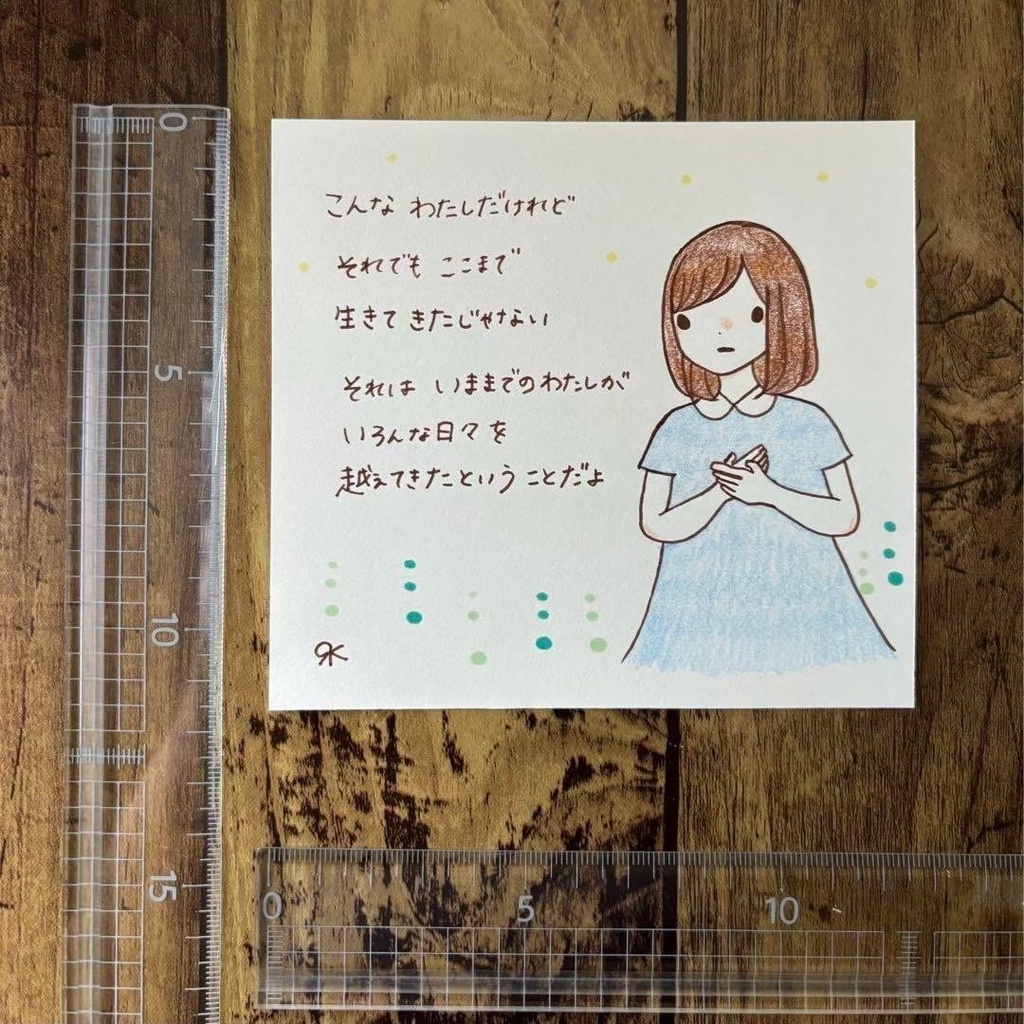 こんな わたしだけれど
それでも ここまで
生きて きたじゃない
それは いままでのわたしが
いろんな日々を
越えてきたという ことだよ
0
5
10
15
0 5 10